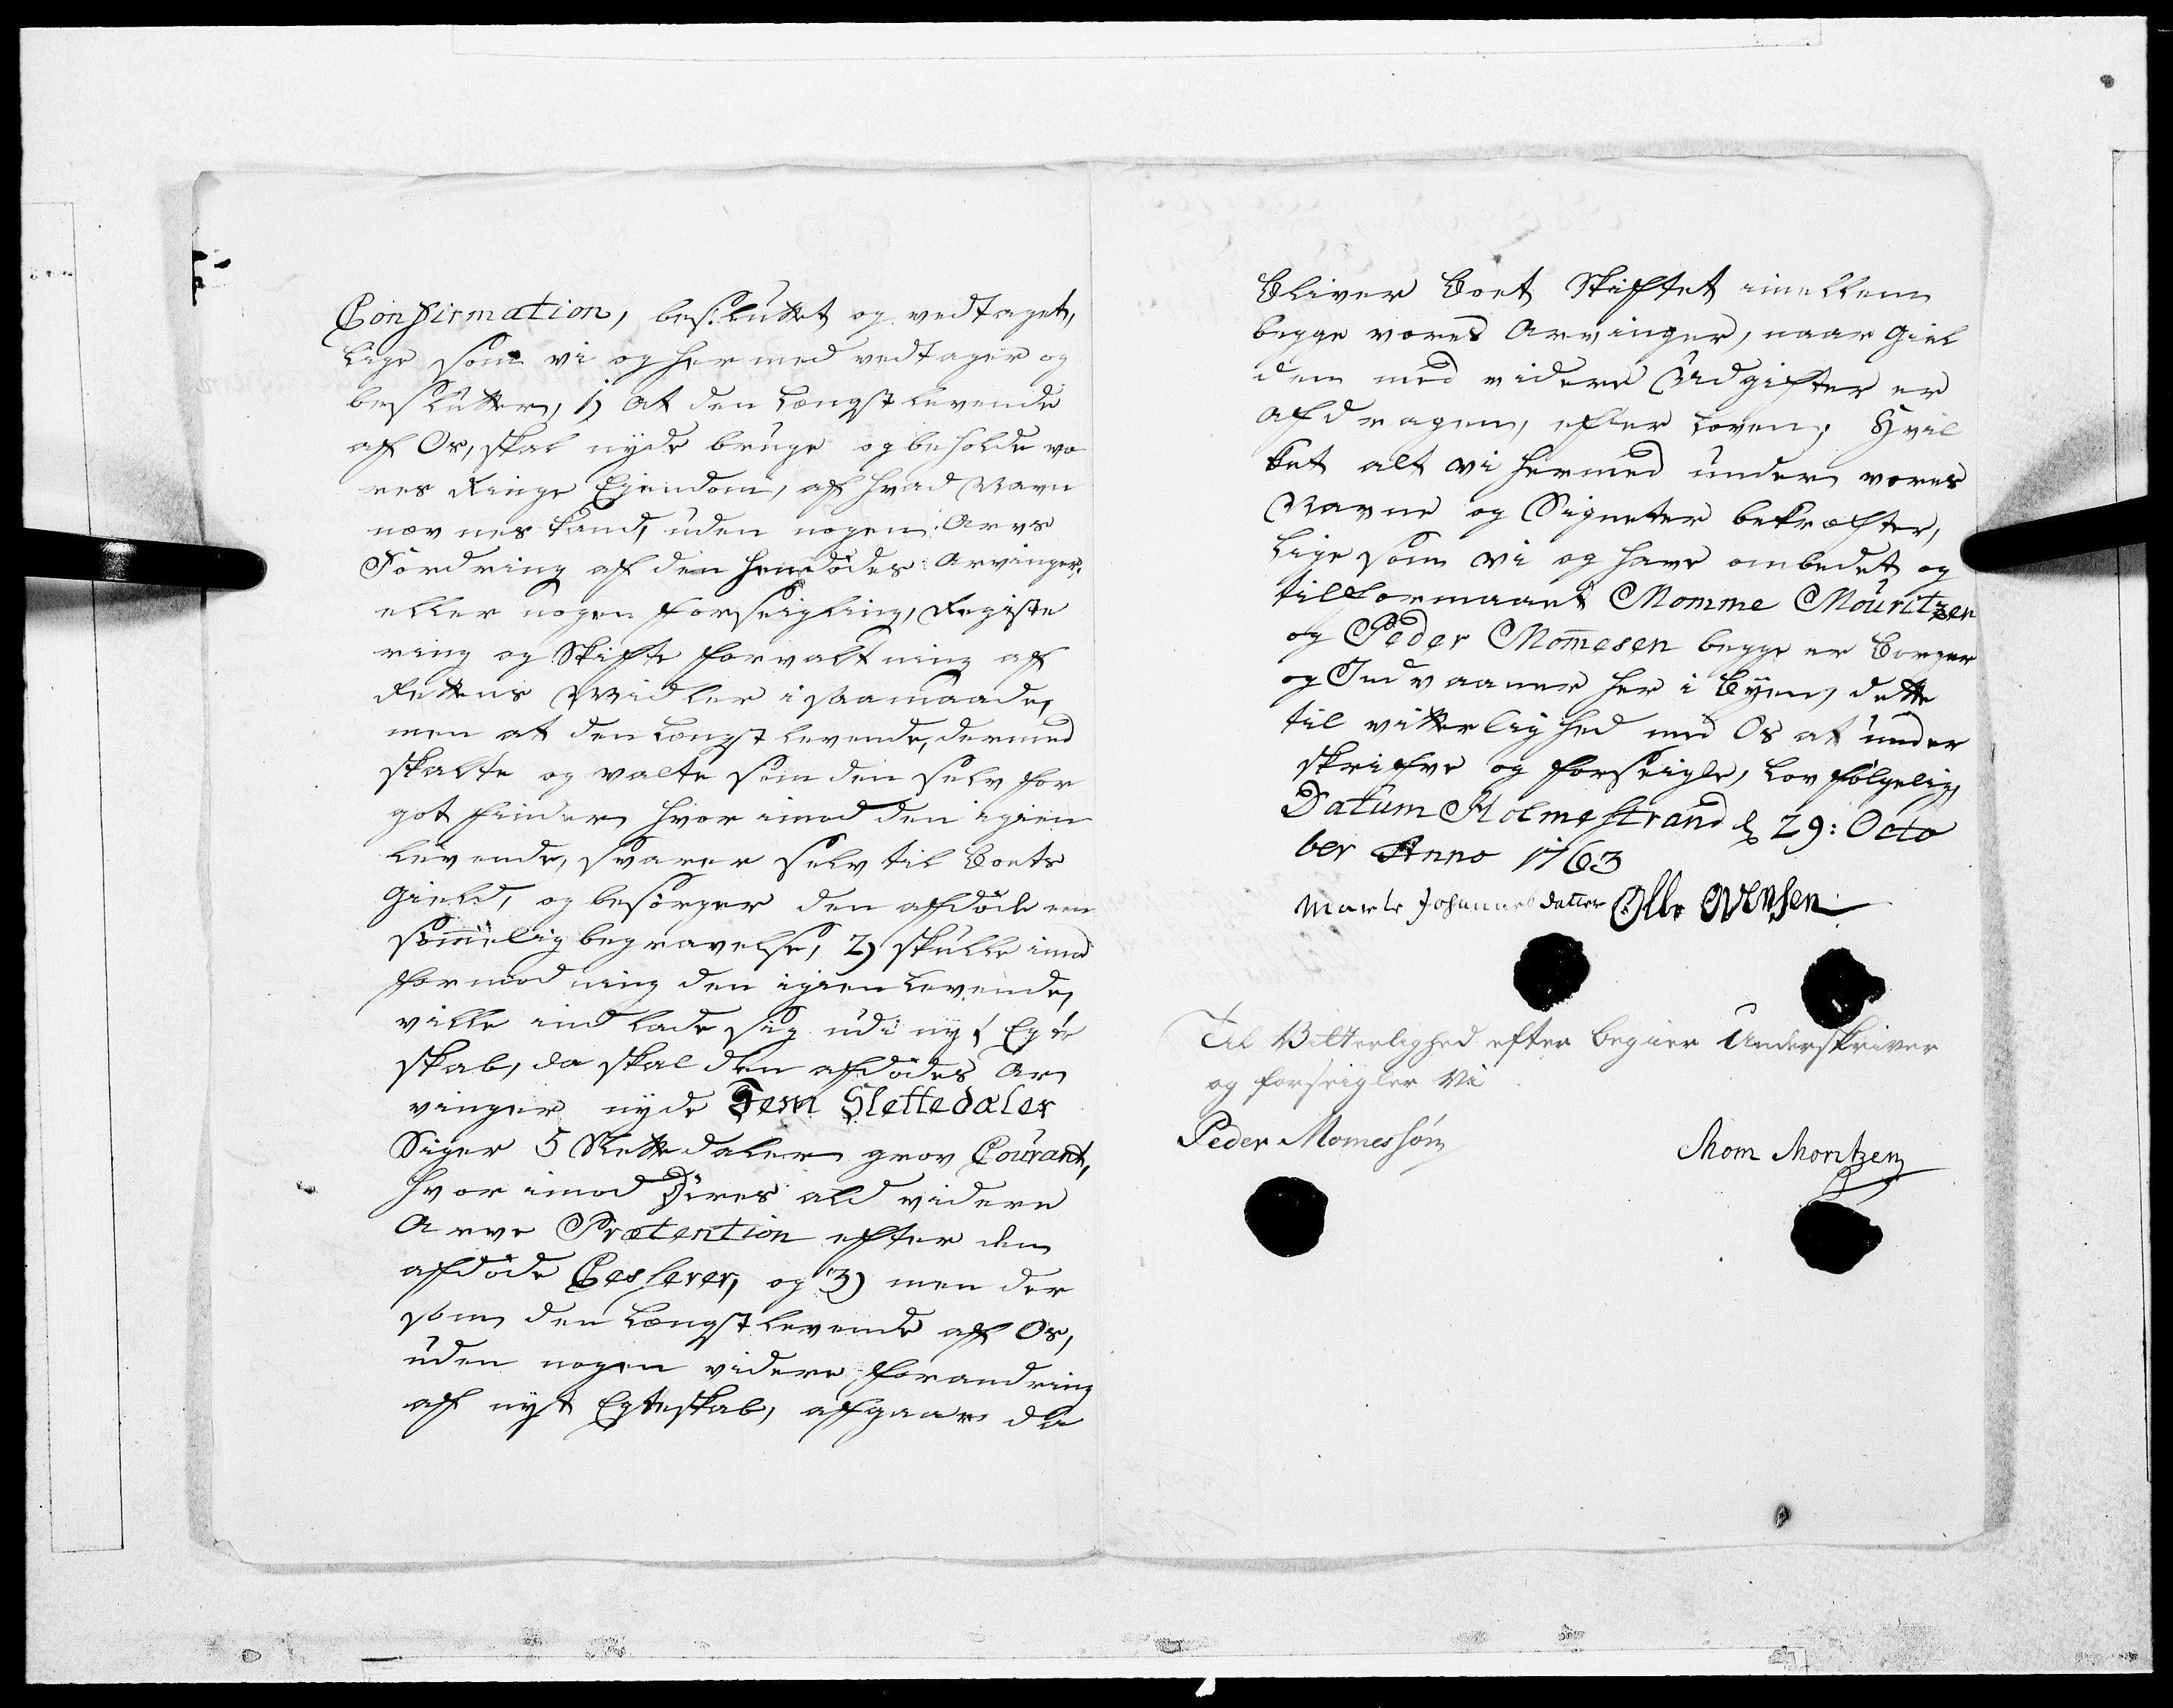 Confirmation, besluttet og vedtaget,
lige som vi og hermed vedtager og
beslutter, 1) At den Længst levende
af Os, skal nyde bruge og beholde vo
res Ringe Ejendom, af hvad Navn
nævnes kand, uden nogen Arvs
Fordring af den hendødes Arvinger,
eller nogen forseigling, Registe
ring og Skifte forvaltning af
Rettens Midler i saamaade,
men at den Længst levende, dermed
skalte og valte som den selv for
got finder, hvor imod den igien
levende, svarer selv til Boets
Gield, og besørger den afdøde en
sømmelig begravelse, 2) skulle imod
formodning den igienlevende,
ville ind lade sig udi nyt Egte
skab, da skal den afdødes Ar
vinger nyde Fem Slettedaler
Siger 5 Slettedaler grov Courant,
hvor imod Deres ald videre
Arve Prætention efter den
afdøde Cesserer, og 3) men der
som den Længst levende af Os,
uden nogen videre forandring
af nyt Egteskab, afgaar da
Bliver Boet Skiftet imellem
begge vores Arvinger, naar Giel
den med videre Udgifter er
afdragen, efter Loven; Hvil
ket alt vi hermed under vores
Navne og Signeter bekræfter,
Lige som vi og have ombedet og
tilformaaet Momme Mouritzen
og Peder Mom̄esen begge er Borger
og Indvaaner her i Byen, dette
til vitterlighed med Os at under
skrifve og forseigle, Lov følgelig,
Datum Holmestrand d 29: Octo
ber Anno 1763
Marte Johannes datter Olle Ovensen
Til Vitterlighed efter begier Underskriver
og forseigler Vi
Peder Momessøn
Mom Moritzen